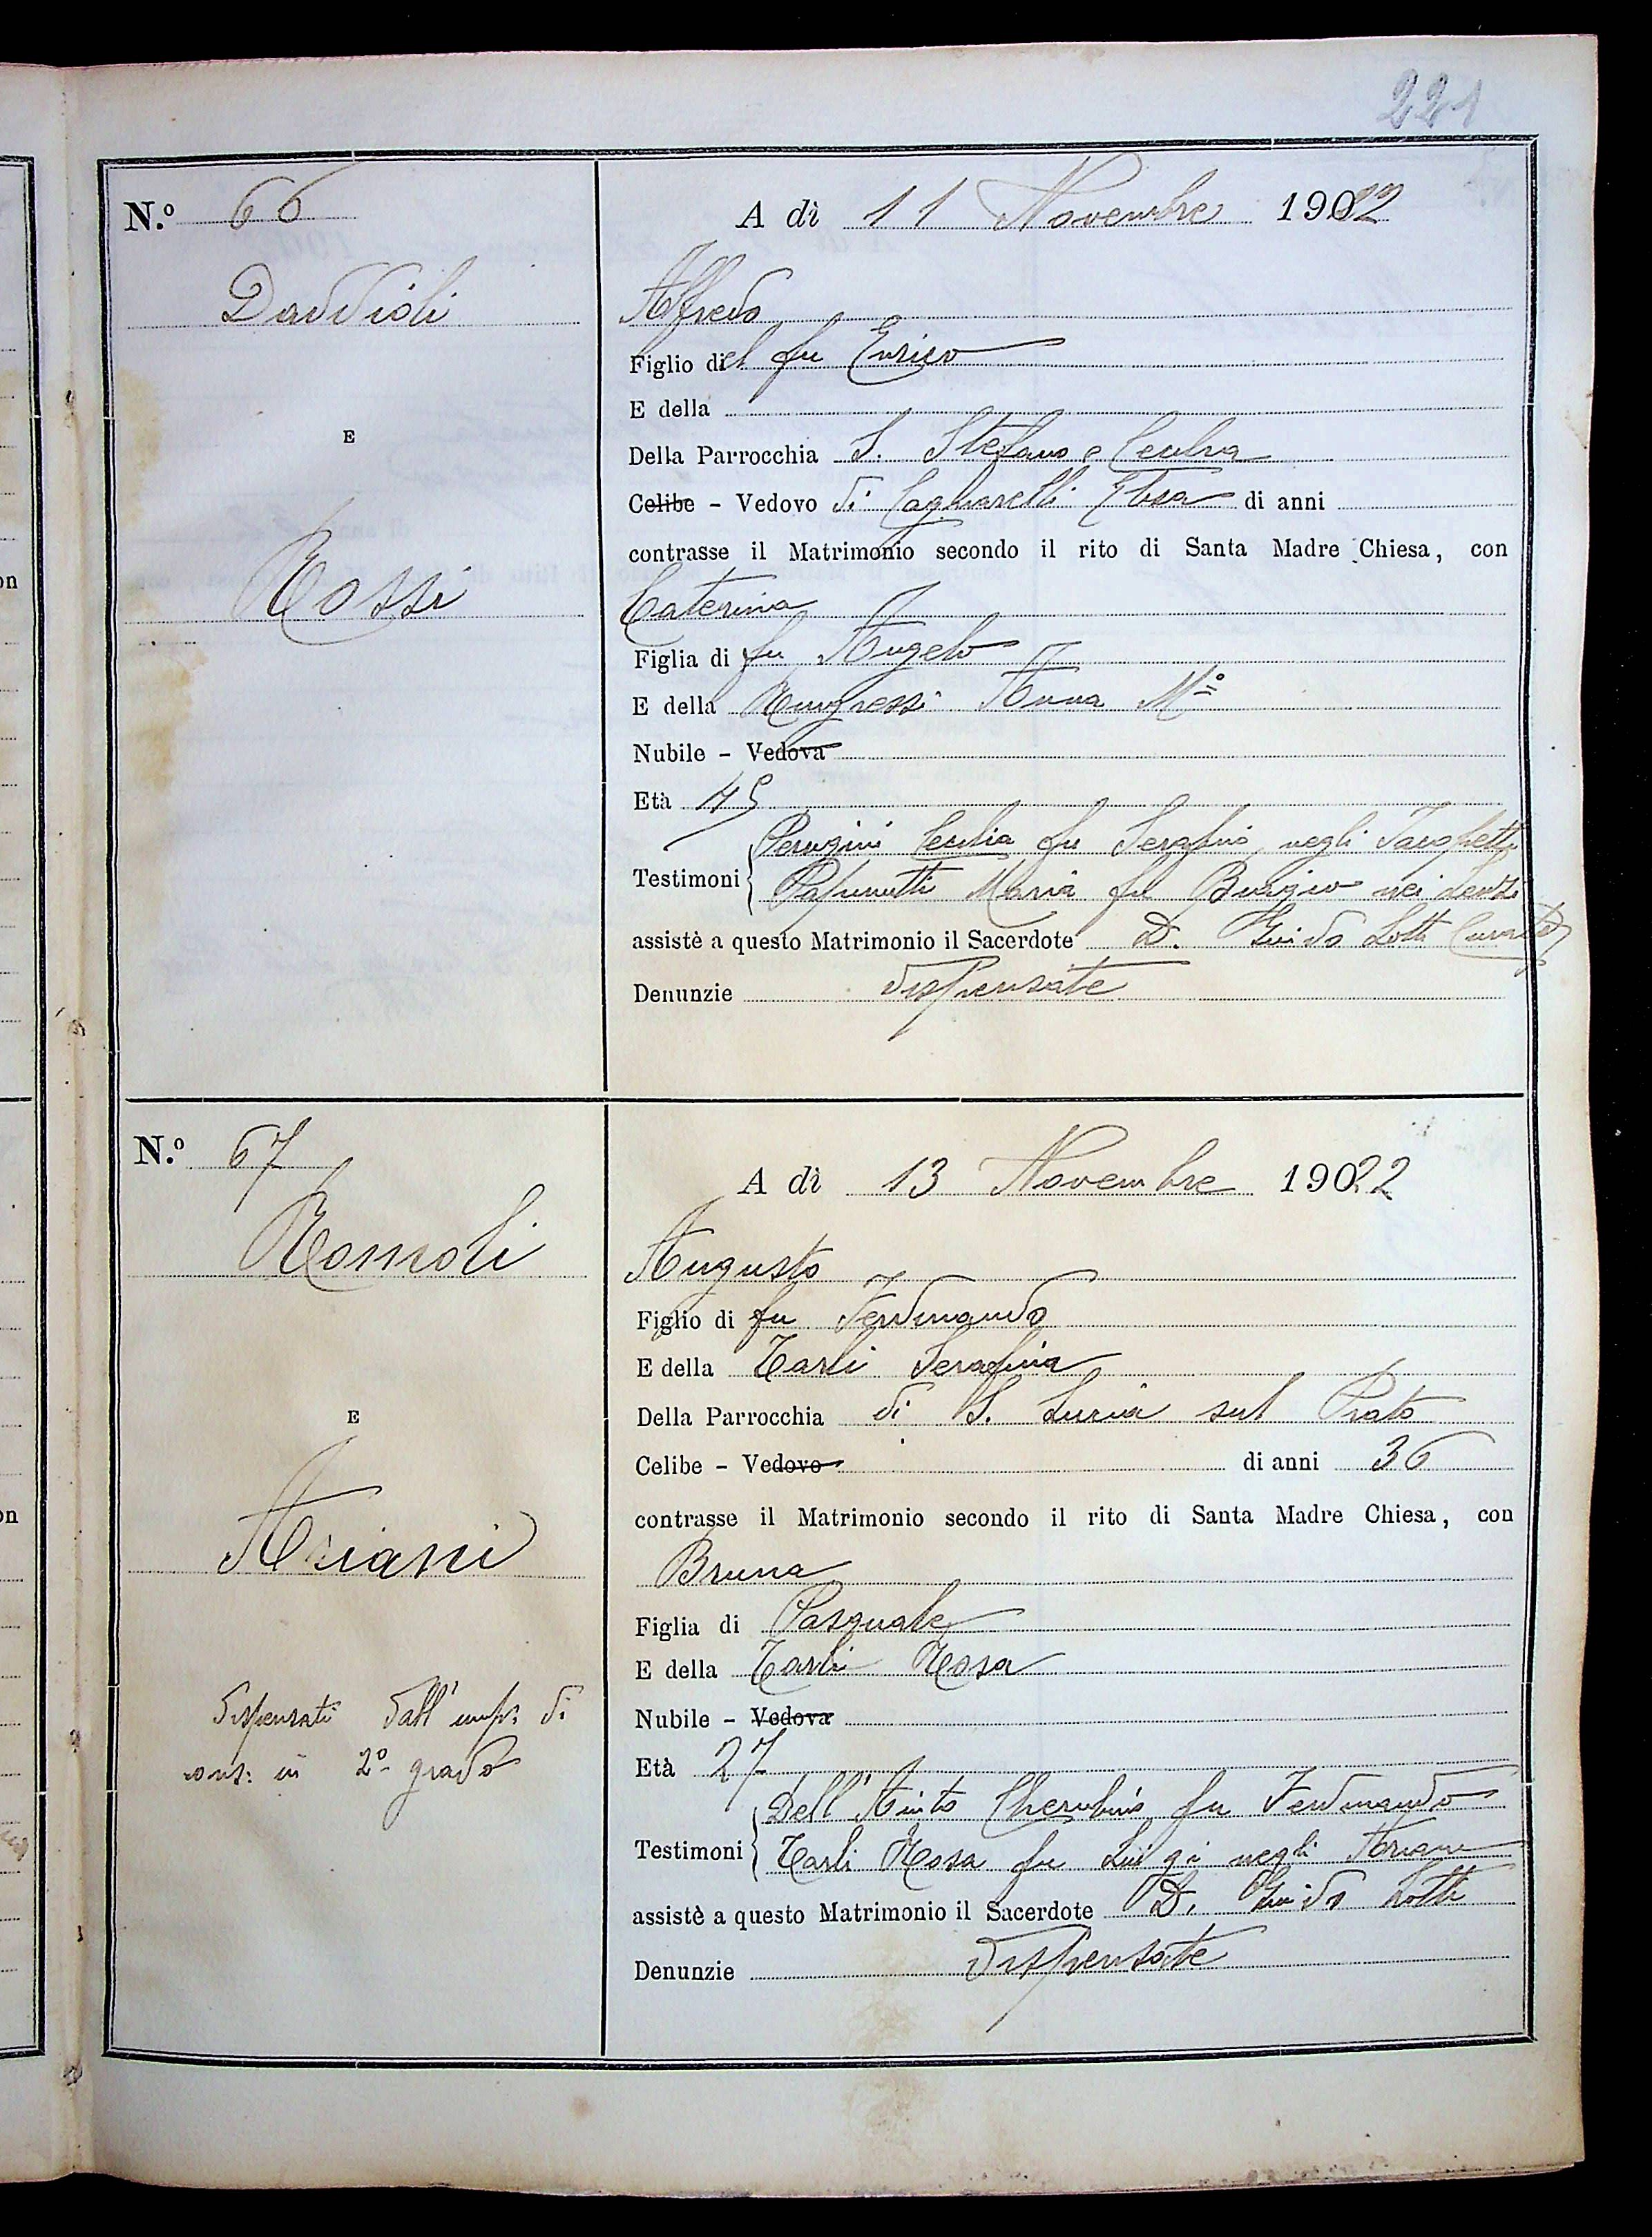 221
N.º 66
A dì 11 Novembre 1922
Daddioli
Alfredo
Figlio del fu Enrico
E della
E
Della Parrocchia S. Stefano e Cecilia
Celibe - Vedovo di Cagnarelli di anni
contrasse il Matrimonio secondo il rito di Santa Madre Chiesa, con
Rossi
Caterina
Figlia di fu Angelo
E della Anna Mª
Nubile - Vedova
Età 45
Perugini Cecilia fu Serafino negli
Testimoni
Maria fu nei
assistè a questo Matrimonio il Sacerdote D. Guido Lotti Curato
Denunzie dispensate
N.º 67
A dì 13 Novembre 1922
Romoli
Augusto
Figlio di fu Ferdinando
E della Tarli Serafina
Della Parrocchia di S. Lucia sul Prato
E
Celibe - Vedovo di anni 36
contrasse il Matrimonio secondo il rito di Santa Madre Chiesa, con
Ariani
Bruna
Figlia di Pasquale
E della Tarli Rosa
Dispensati dall'imp: di
cons: in 2º grado
Nubile - Vedova
Età 27
Dell'Aiuto Cherubino fu Ferdinando
Testimoni
Tarli Rosa fu Luigi negli Ariani
assistè a questo Matrimonio il Sacerdote D. Guido Lotti
Denunzie Dispensate